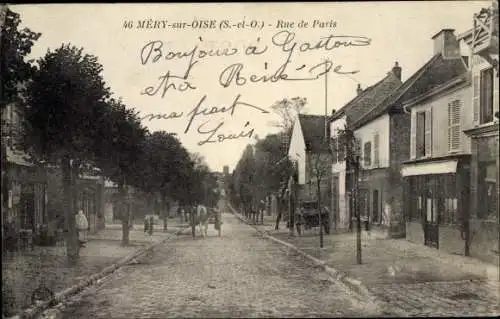 46 MÉRY-sur-OISE (S.-et-O.) - Rue de Paris
Bonjour à Gaston
et à Réné de
ma part
Louis